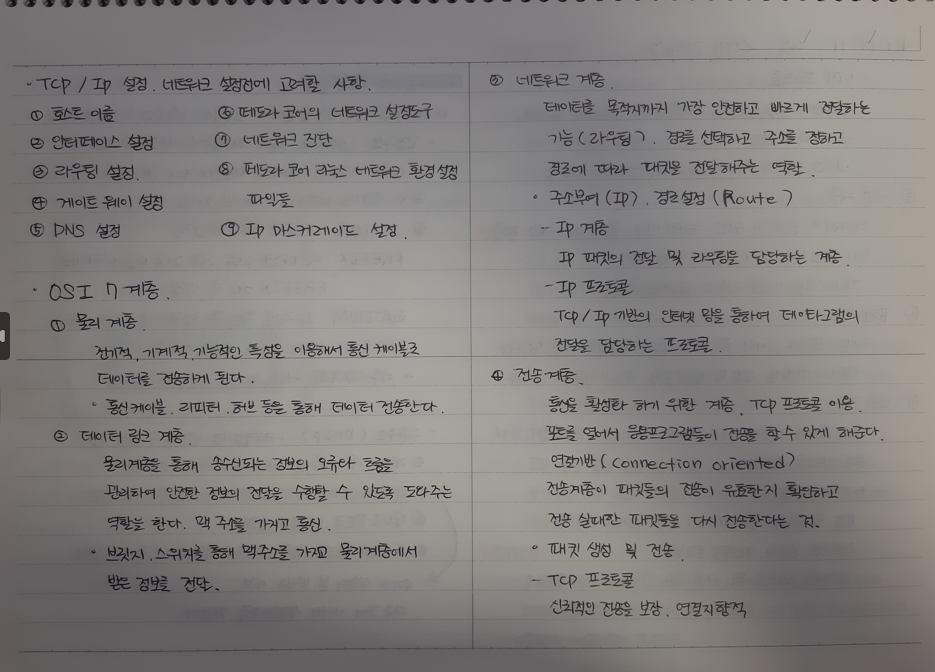 · TCP / Ip 설정. 네트워크 설정전에 고려할 사항.
① 호스트 이름
② 인터페이스 설정
③ 라우팅 설정.
④ 게이트 웨이 설정
⑤ DNS 설정
⑥ 페도라 코어의 네트워크 설정도구
⑦ 네트워크 진단
⑧ 페도라 코어 리눅스 네트워크 환경설정
파일들
⑨ Ip 마스커레이드 설정.
· OSI 7 계층.
① 물리 계층.
전기적, 기계적, 기능적인 특성을 이용해서 통신 케이블로
데이터를 전송하게 된다.
· 통신케이블. 리피터. 허브 등을 통해 데이터 전송한다.
② 데이터 링크 계층.
물리계층을 통해 송수신되는 정보의 오류와 흐름을
관리하여 안전한 정보의 전달을 수행할 수 있도록 도와주는
역할을 한다. 맥 주소를 가지고 통신.
· 브릿지. 스위치를 통해 맥주소를 가지고 물리계층에서
받은 정보를 전달.
③ 네트워크 계층.
데이터를 목적지까지 가장 안전하고 빠르게 전달하는
기능(라우팅). 경로를 선택하고 주소를 정하고
경로에 따라 패킷을 전달해주는 역할.
· 주소부여(IP). 경로설정(Route)
- Ip 계층
Ip 패킷의 전달 및 라우팅을 담당하는 계층.
- Ip 프로토콜
TCP/Ip 기반의 인터넷 망을 통하여 데이타그램의
전달을 담당하는 프로토콜.
④ 전송계층.
통신을 활성화 하기 위한 계층. TCP 프로토콜 이용.
포트를 열어서 응용프로그램들이 전송을 할 수 있게 해준다.
연결기반(connection oriented)
전송계층이 패킷들의 전송이 유효한지 확인하고
전송 실패한 패킷들을 다시 전송한다는 것.
· 패킷 생성 및 전송.
- TCP 프로토콜
신뢰적인 전송을 보장. 연결지향적